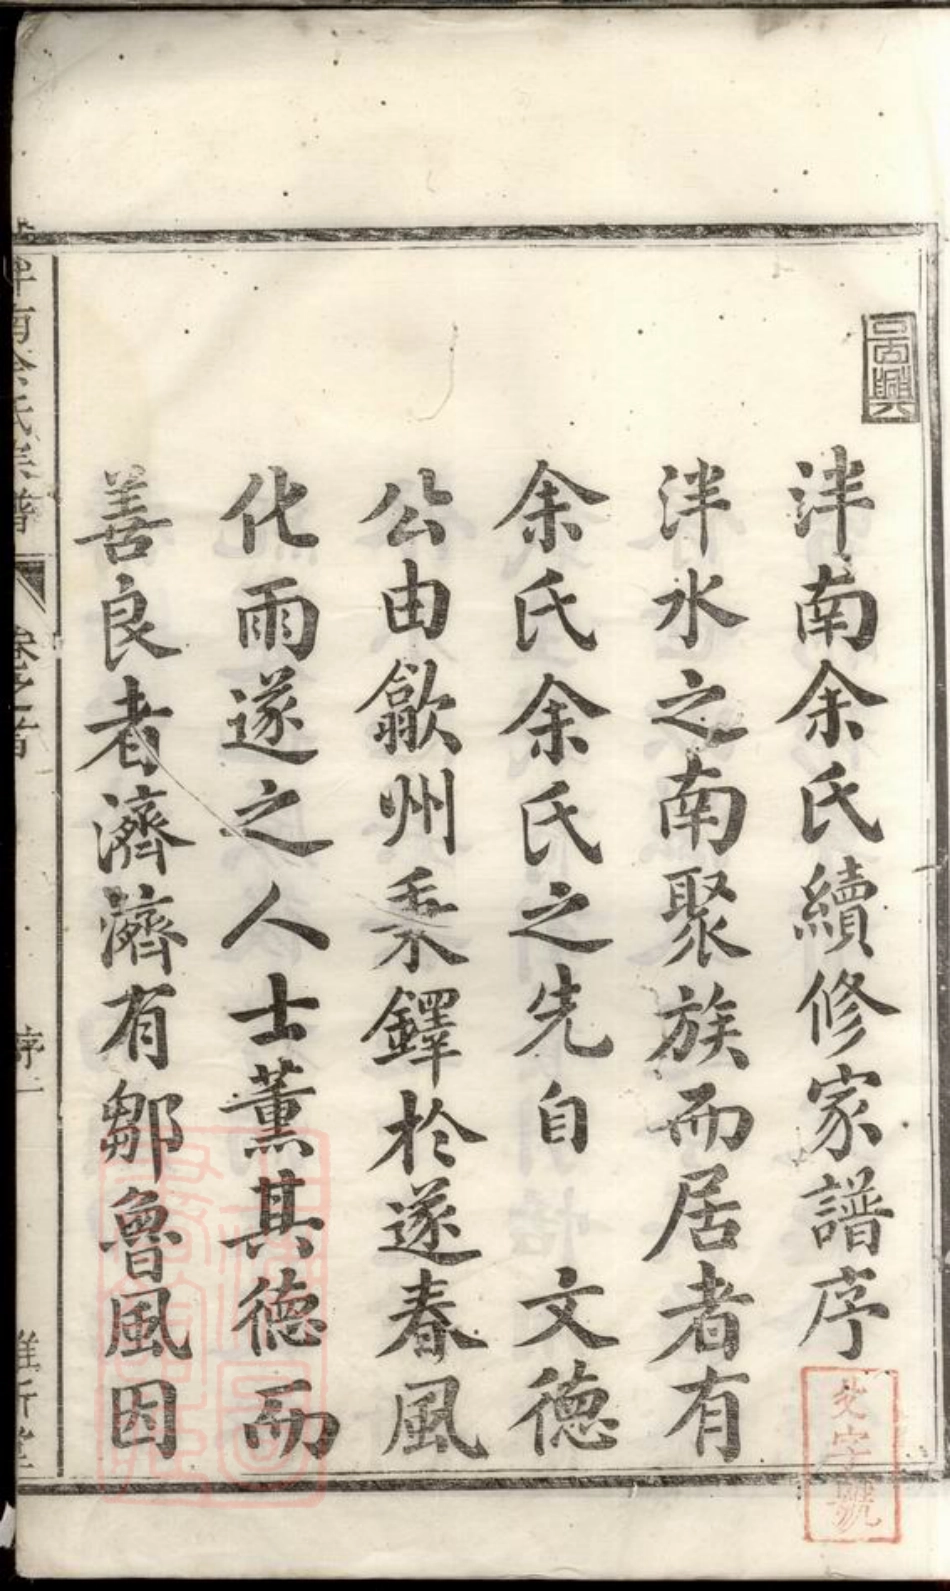 泮南余氏續修家譜序
泮水之南聚族而居者有
余氏余氏之先自　文德
公由歙州秉鐸於遂春風
化雨遂之人士薰其德而
善良者濟濟有鄒魯風因
文字號
南余氏宗譜
卷之首
序一